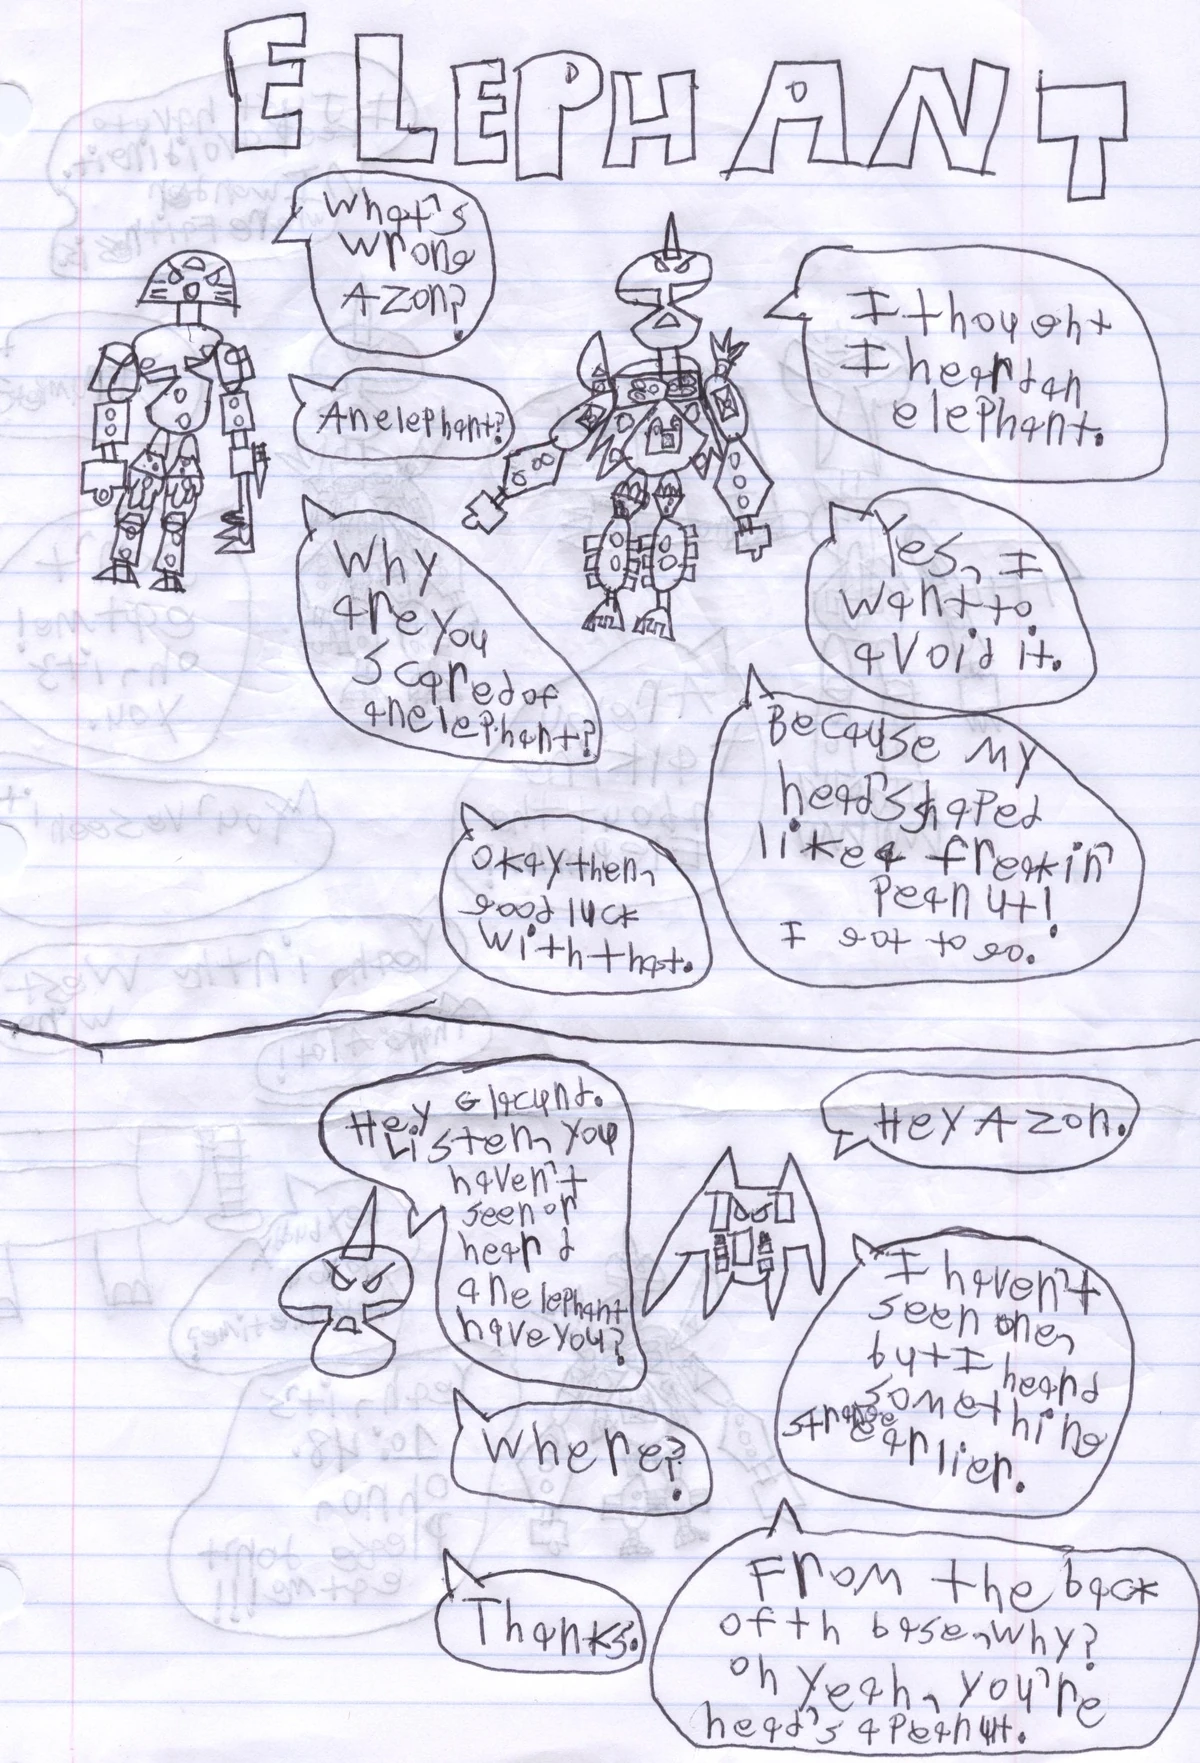 ELEPHANT
What's
wrong
Azon?
I thought
I heard an
elephant.
An elephant?
Yes, I
want to
avoid it.
Why
are you
scared of
an elephant?
Because my
head's shaped
like a freakin'
peanut!
I got to go.
Okay then,
good luck
with that.
Hey Glacund.
Listen, you
haven't
seen or
heard
an elephant
have you?
Hey Azon.
I haven't
seen one,
but I heard
something
strange
earlier.
Where?
From the back
of th base, why?
oh yeah, you're
head's a peanut.
Thanks.